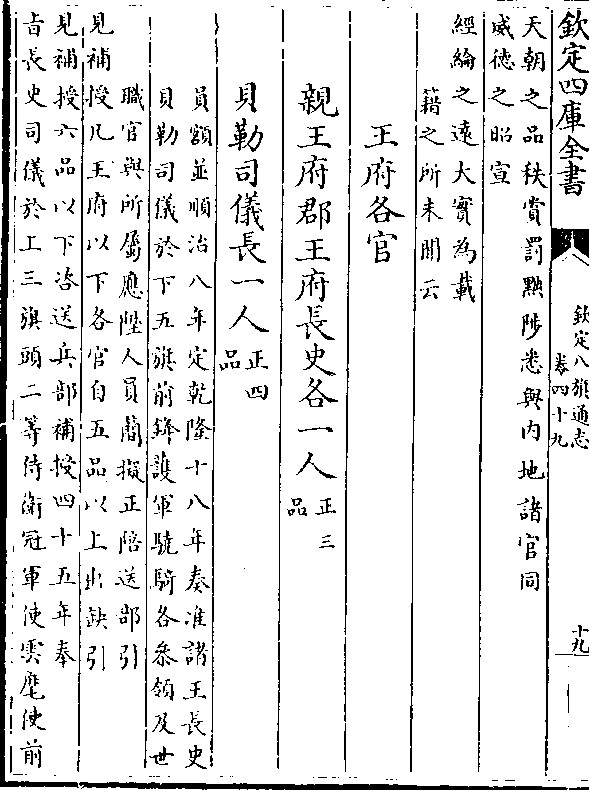 欽定四庫全書
欽定八旗通志
卷四十九
十九
天朝之品秩賞罰黜陟悉與内地諸官同
威德之昭宣
經綸之遠大實為載
籍之所未聞云
王府各官
親王府郡王府長史各一人正三
品
貝勒司儀長一人正四
品
員額並順治八年定乾隆十八年奏准諸王長史
貝勒司儀於下五旗前鋒護軍驍騎各叅領及世
職官與所屬應陞人員蕳擬正陪送部引
見補授凡王府以下各官自五品以上出缺引
見補授六品以下咨送兵部補授四十五年奉
㫖長史司儀於上三旗頭二等侍衛冠軍使雲麾使前